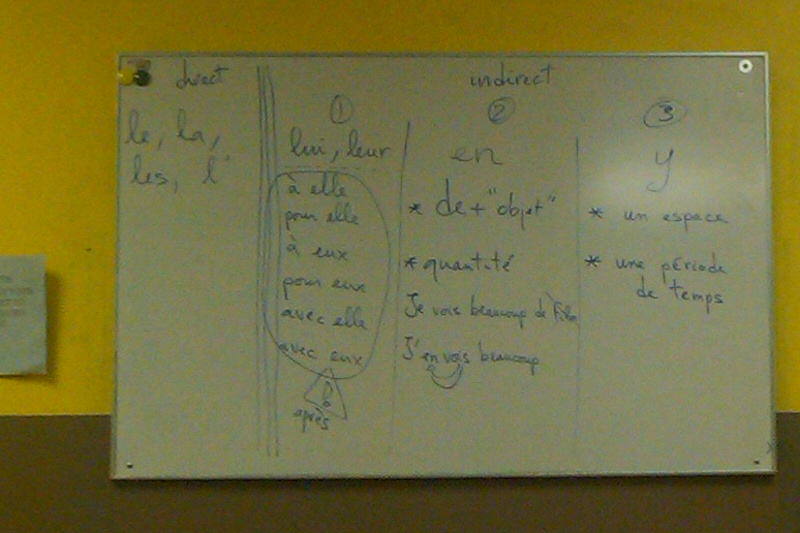 direct
le, la,
les, l'
indirect
①
lui, leur
à elle
pour elle
à eux
pour eux
avec elle
avec eux
!
après
②
en
* de + "objet"
* quantité
Je vois beaucoup de
J'en vois beaucoup
③
y
* un espace
* une période
de temps